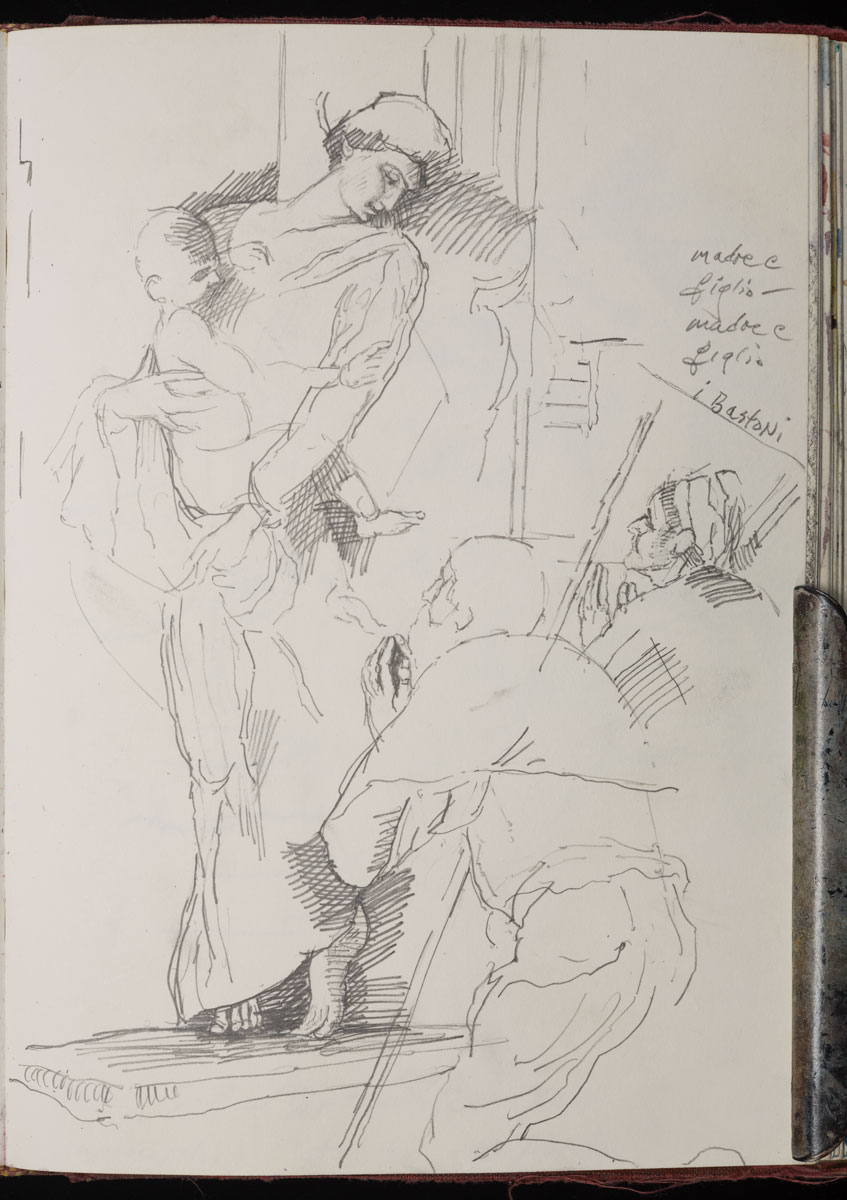 madre e
figlio —
madre e
figlio
i Bastoni